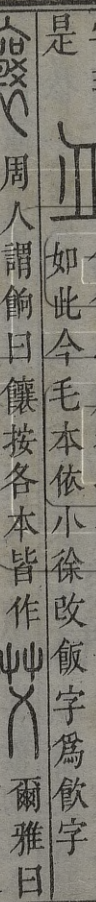 是如此今毛本依小徐改飯字爲飮字
周人謂餉曰饟按各本皆作爾雅曰